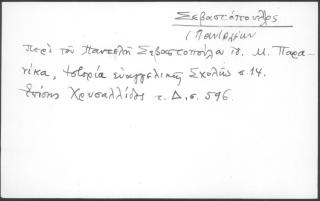 Σεβαστόπουλος
(Παντελῆς
Περὶ τοῦ Παντελῆ Σεβαστοπούλου β. Μ. Παρα-
νίκα, Ἱστορία εὐαγγελικῆς Σχολῆς σ. 14.
Ἐπίσης Χρυσαλλίδος τ. Δ, σ. 596.